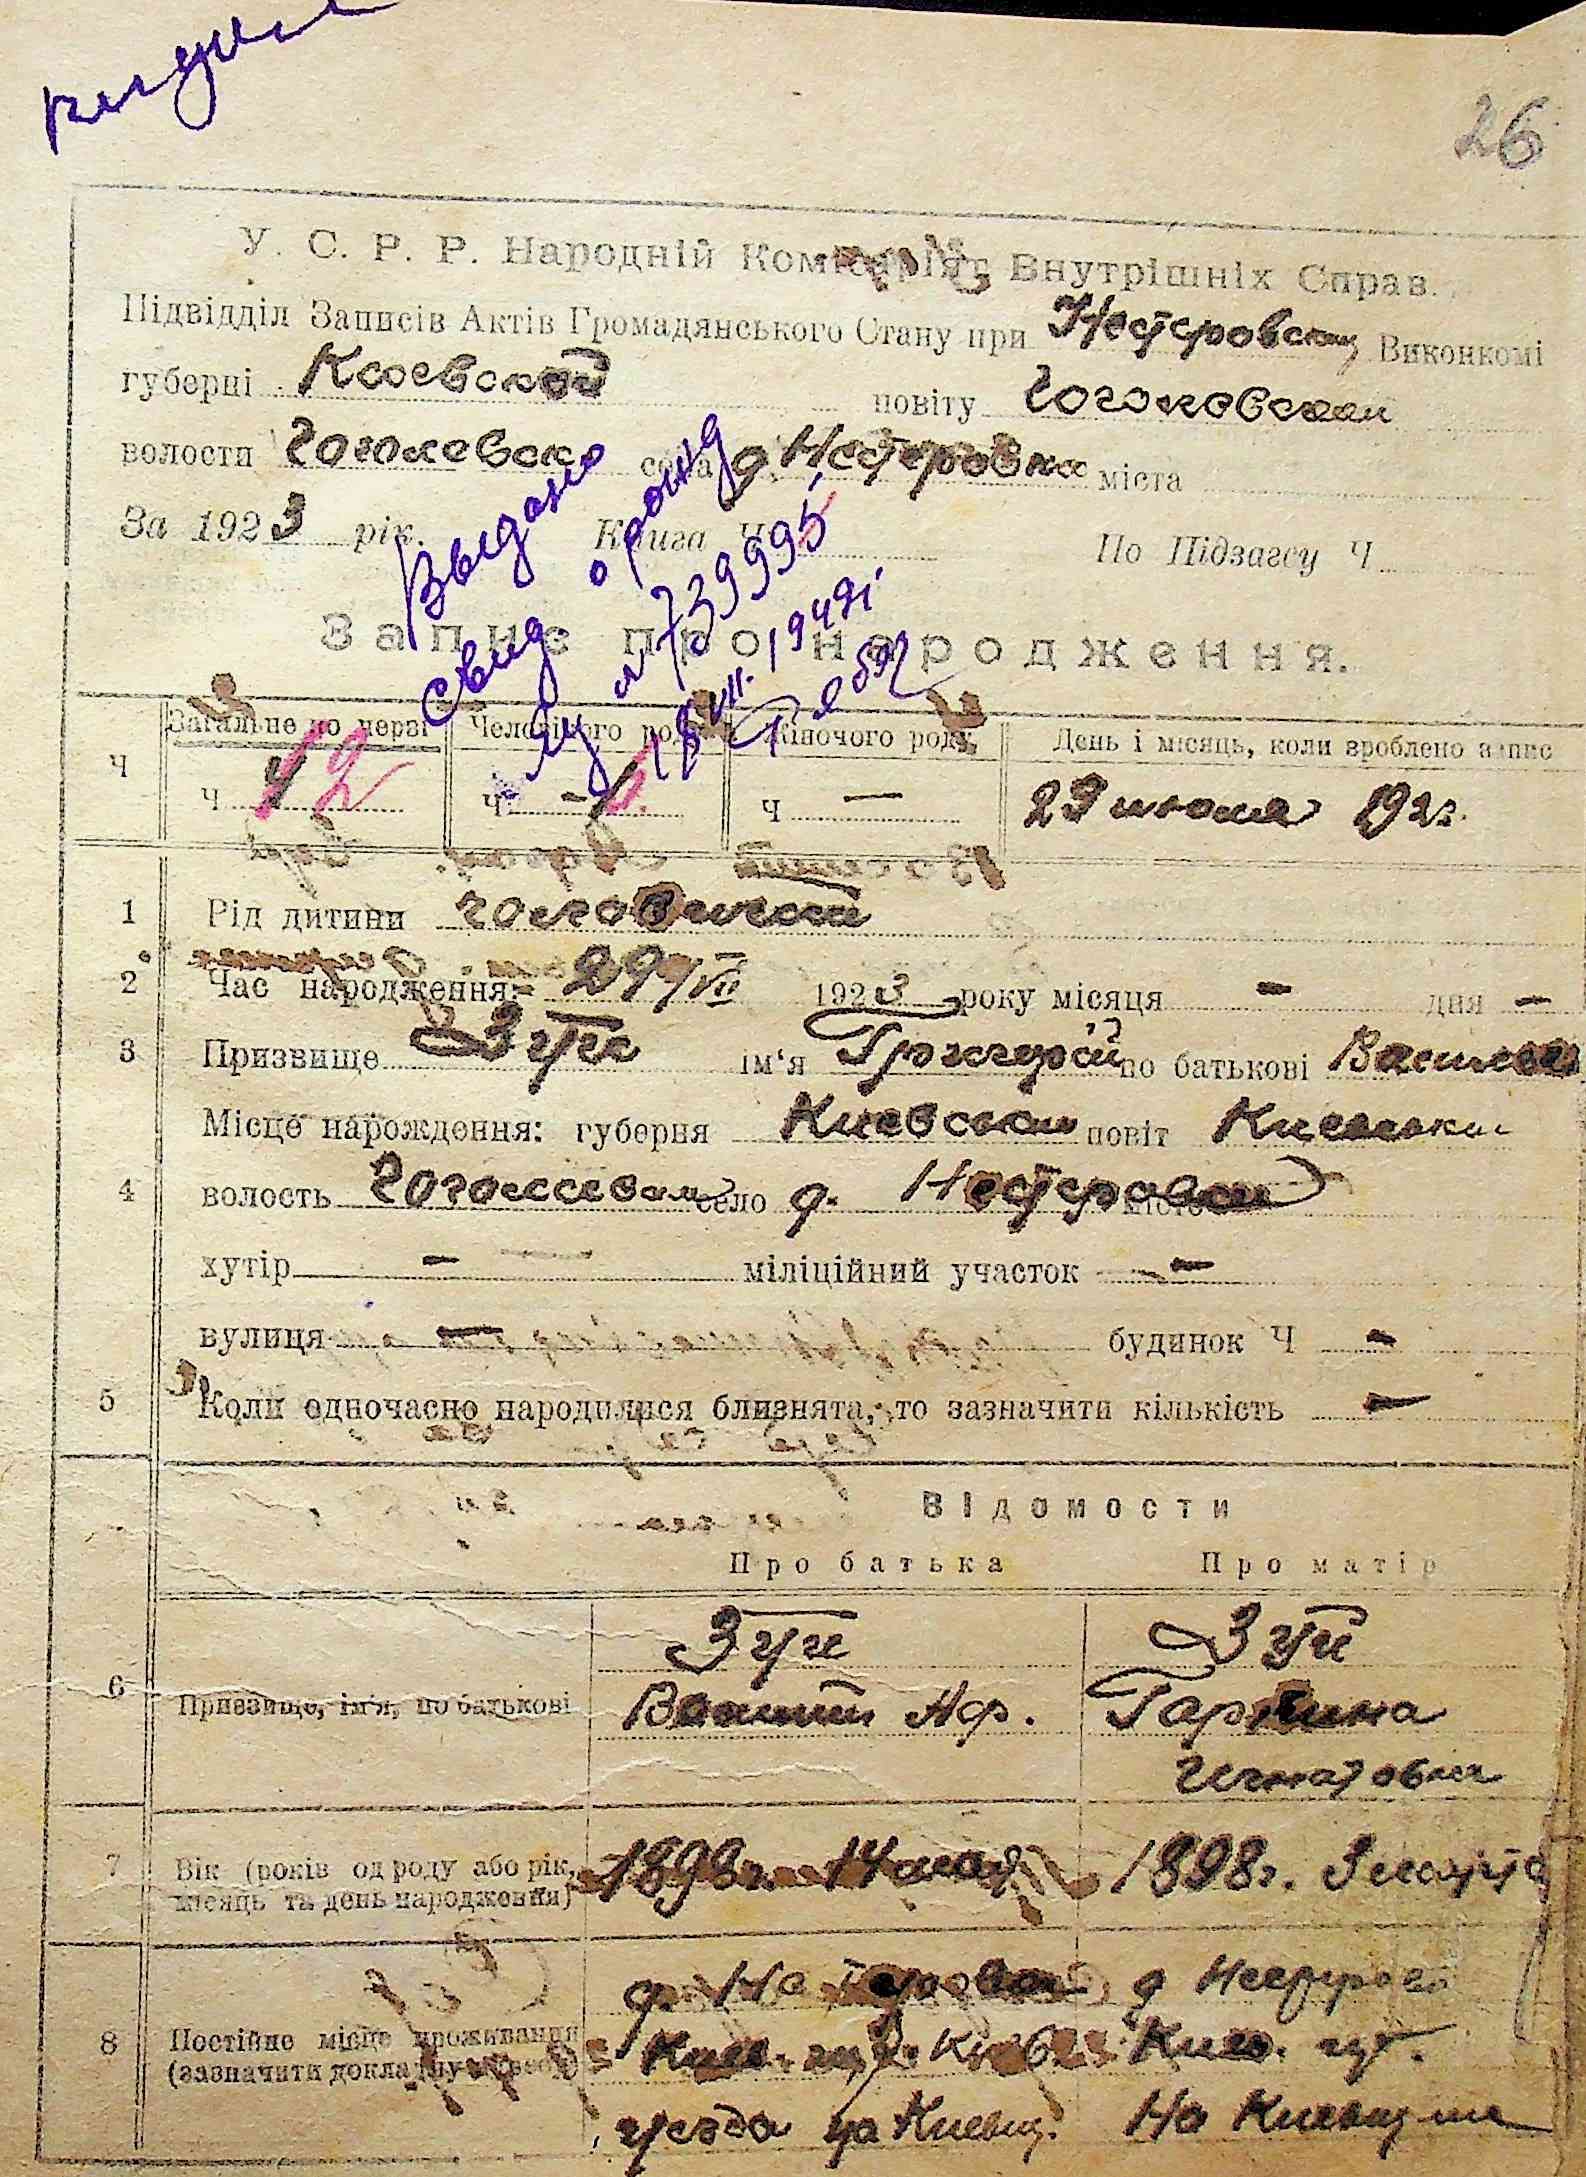 26
У. С. Р. Р. Народній Комісаріят Внутрішніх Справ.
Підвідділ Записів Актів Громадянського Стану при Нестеровском Виконкомі
губерні Киевской повіту
волости села д. Нестеровка міста
За 1923 рік. Книга Ч По Підзагсу Ч
Выдано
свид. о рожд
№ 739995
18/VII. 1949г.
Запис про народження.
Загальне по черзі Человічого роду Жіночого роду День і місяць, коли зроблено запис
Ч Ч 12 Ч - Ч — 29 июля 1923
1 Рід дитини
2 Час народження: 29/VII 1923 року місяця - дня -
3 Призвище Зуй ім'я Григорій по батькові
Місце нарождення: губерня Киевськая повіт Киевський
4 волость село д. Нестеровка місто
хутір - міліційний участок -
вулиця - будинок Ч -
5 Коли одночасно народилися близнята, то зазначити кількість -
Відомости
Про батька Про матір
6 Призвище, ім'я, по батькові
Зуй Зуй
Василий Аф. Гарпина
Игнатовна
7 Вік (років од роду або рік, місяць та день народження) 1898г. 14 мая 1898г. 3 марта
8 Постійне місце проживання (зазначити докладну адресу)
д. Нестеровка д Нестеровка
Киев. губ. Киев. Киев. губ.
уезда на Киевщ. На Киевщине